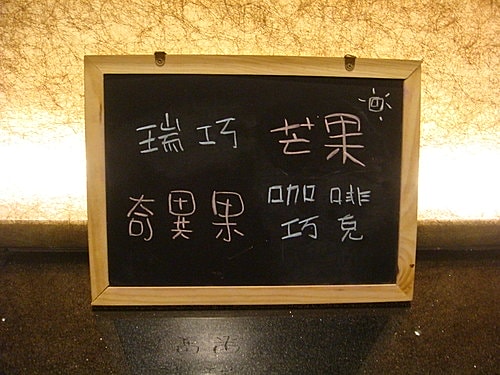 瑞巧
芒果
奇異果
咖啡
巧克